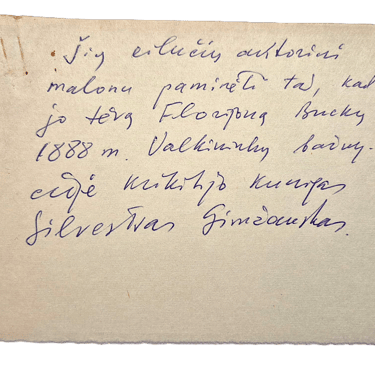 Šių eilučių autoriui
malonu paminėti tą, kad
jo tėvą Florijoną Bucką
1888 m. Valkininkų bažny-
čioje krikštijo kunigas
Silvestras Gimžauskas.